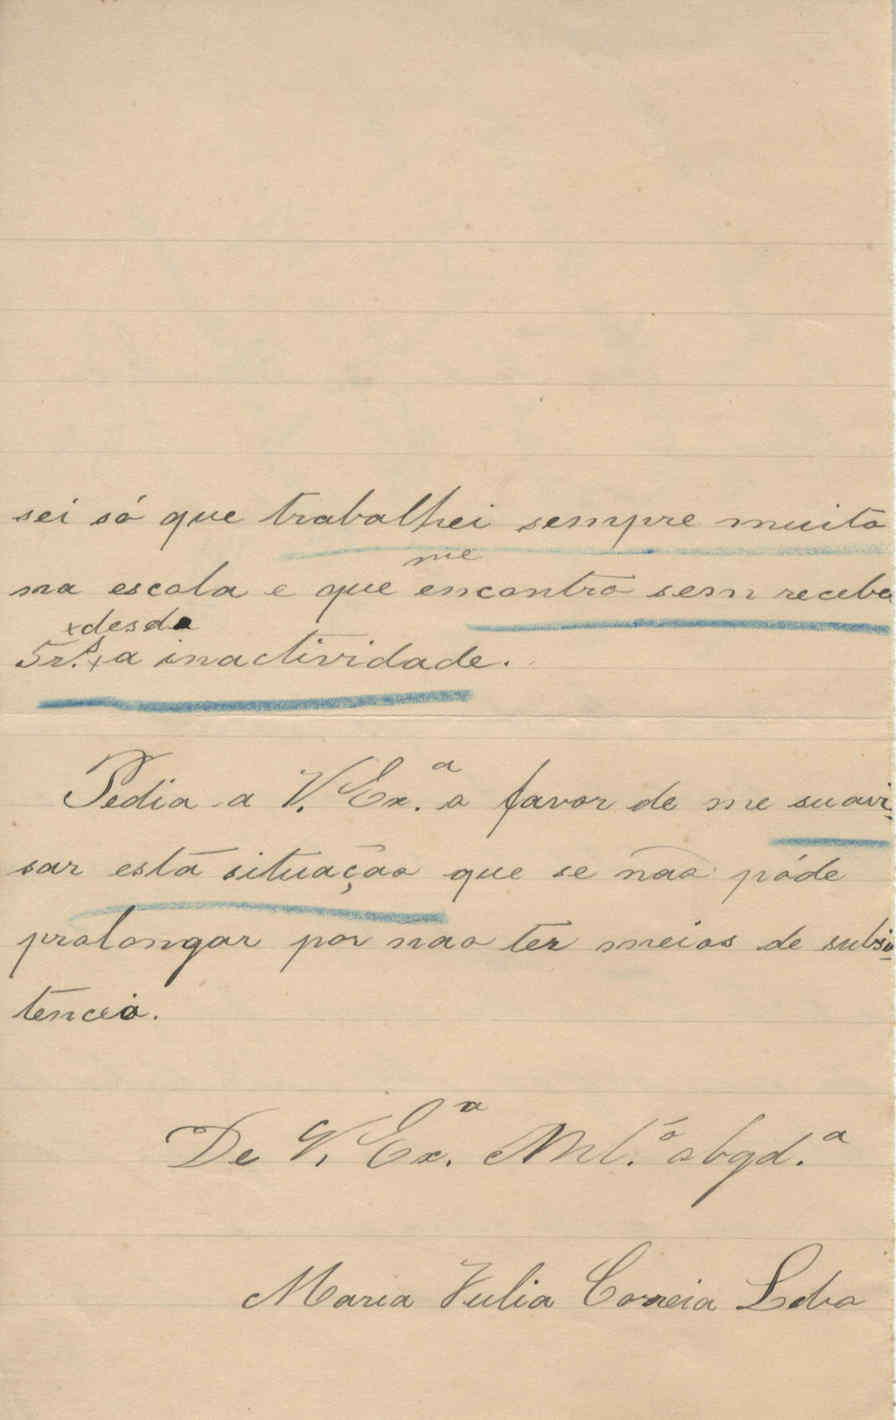 sei só que trabalhei sempre muito
me
na escola e que encontro sem recebe
+desde
5r.s + a inactividade.
Pedia a V. Ex.ª o favor de me suavi-
sar esta situação que se não póde
prolongar por nao ter meios de subsis-
tencia.
De V. Ex.ª Mt.º obgd.ª
Maria Julia Correia Lobo